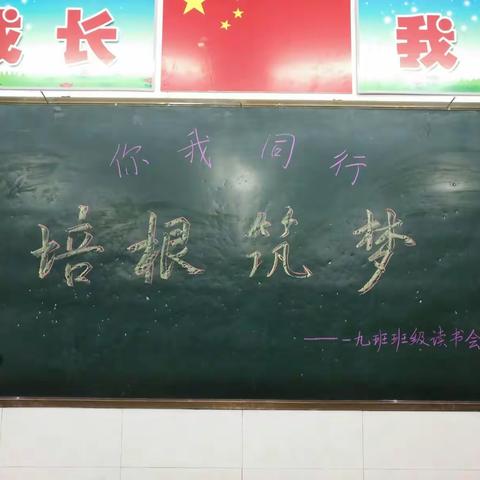 成长
我
你我同行
培根筑梦
——一九班班级读书会